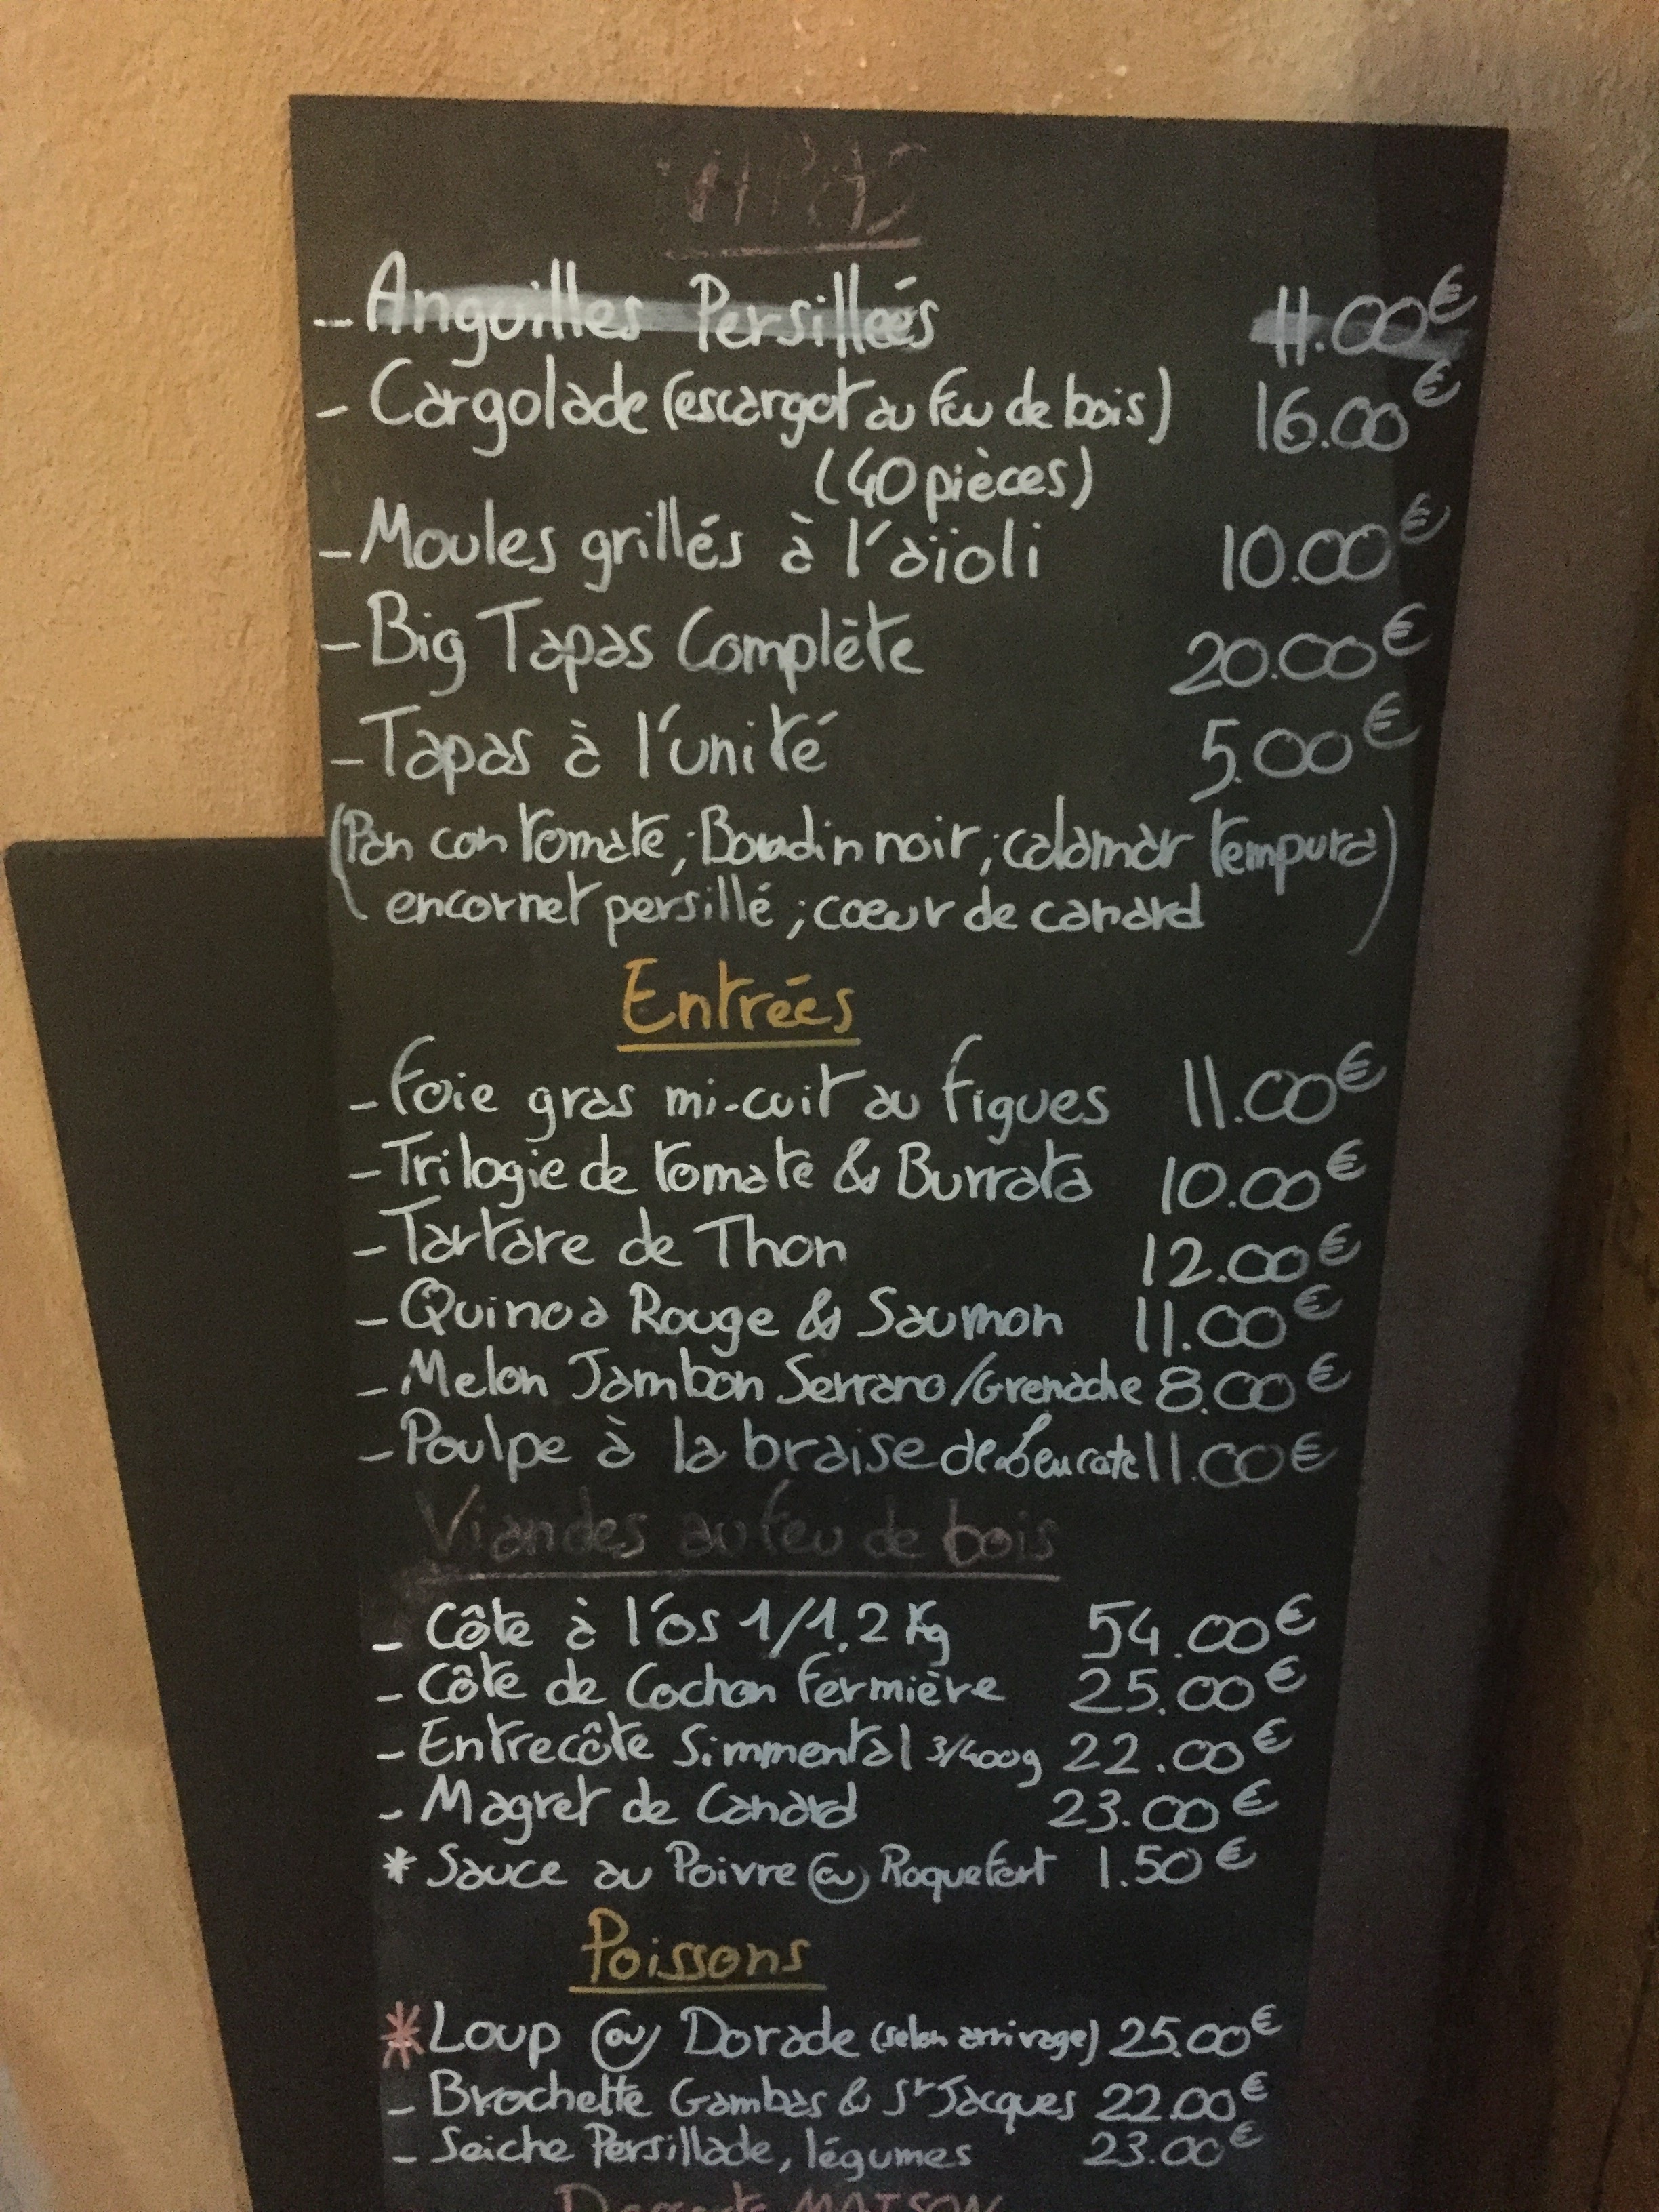 TAPAS
- Anguilles Persillées 11.00€
- Cargolade (escargot au feu de bois) 16.00€
(40 pièces)
- Moules grillés à l'aïoli 10.00€
- Big Tapas Complète 20.00€
- Tapas à l'unité 5.00€
(Pan con tomate, ; Boudin noir, ; calamar tempura)
encornet persillé ; coeur de canard
Entrées
- Foie gras mi-cuit au figues 11.00€
- Trilogie de tomate & Burrata 10.00€
- Tartare de Thon 12.00€
- Quinoa Rouge & Saumon 11.00€
- Melon Jambon Serrano/Grenache 8.00€
- Poulpe à la braise de Leucate 11.00€
Viandes au feu de bois
- Côte à l'os 1/1.2 Kg 54.00€
- Côte de Cochon Fermière 25.00€
- Entrecôte Simmental 3/400g 22.00€
- Magret de Canard 23.00€
* Sauce au Poivre ou Roquefort 1.50€
Poissons
* Loup ou Dorade (selon arrivage) 25.00€
- Brochette Gambas & St Jacques 22.00€
- Seiche Persillade, légumes 23.00€
Desserts MAISON